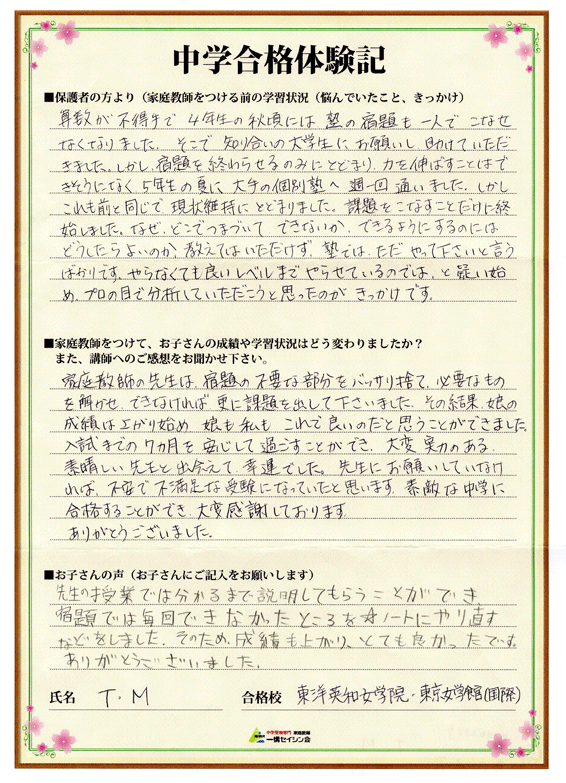 中学合格体験記
■保護者の方より（家庭教師をつける前の学習状況（悩んでいたこと、きっかけ）
算数が不得手で 4年生の秋頃には 塾の宿題も一人でこなせ
なくなりました。そこで 知り合いの大学生にお願いし 助けていただ
きました。しかし、宿題を終わらせるのみにとどまり、力を伸ばすことはで
きそうになく 5年生の夏に 大手の個別塾へ 週一回通いました。しかし
これも前と同じで 現状維持にとどまりました。課題をこなすことだけに終
始しました。なぜ、どこでつまづいて できないか、できるようにするのには
どうしたらよいのか、教えてはいただけず、塾では、ただ やって下さいと言う
ばかりです。やらなくても良いレベルまで やらせているのでは、と疑い始
め、プロの目で分析していただこうと思ったのが きっかけです。
■家庭教師をつけて、お子さんの成績や学習状況はどう変わりましたか？
また、講師へのご感想をお聞かせ下さい。
家庭教師の先生は、宿題の不要な部分をバッサリ捨て、必要なもの
を解かせ、できなければ 更に課題を出して下さいました。その結果、娘の
成績は上がり始め 娘も私も これで良いのだと思うことができました。
入試までの7カ月を安心して過ごすことができ、大変 実力のある
素晴しい先生と出会えて 幸運でした。先生にお願いしていなけ
れば、不安で不満足な受験になっていたと思います。素敵な中学に
合格することができ、大変感謝しております。
ありがとうございました。
■お子さんの声（お子さんにご記入をお願いします）
先生の授業では分かるまで説明してもらうことができ
宿題では毎回できなかったところを☆ノートにやり直す
などをしました。そのため、成績も上がり、とても良かったです。
ありがとうございました。
氏名 T.M 合格校 東洋英和女学院・東京女学館(国際)
中学受験専門 家庭教師
一橋セイシン会